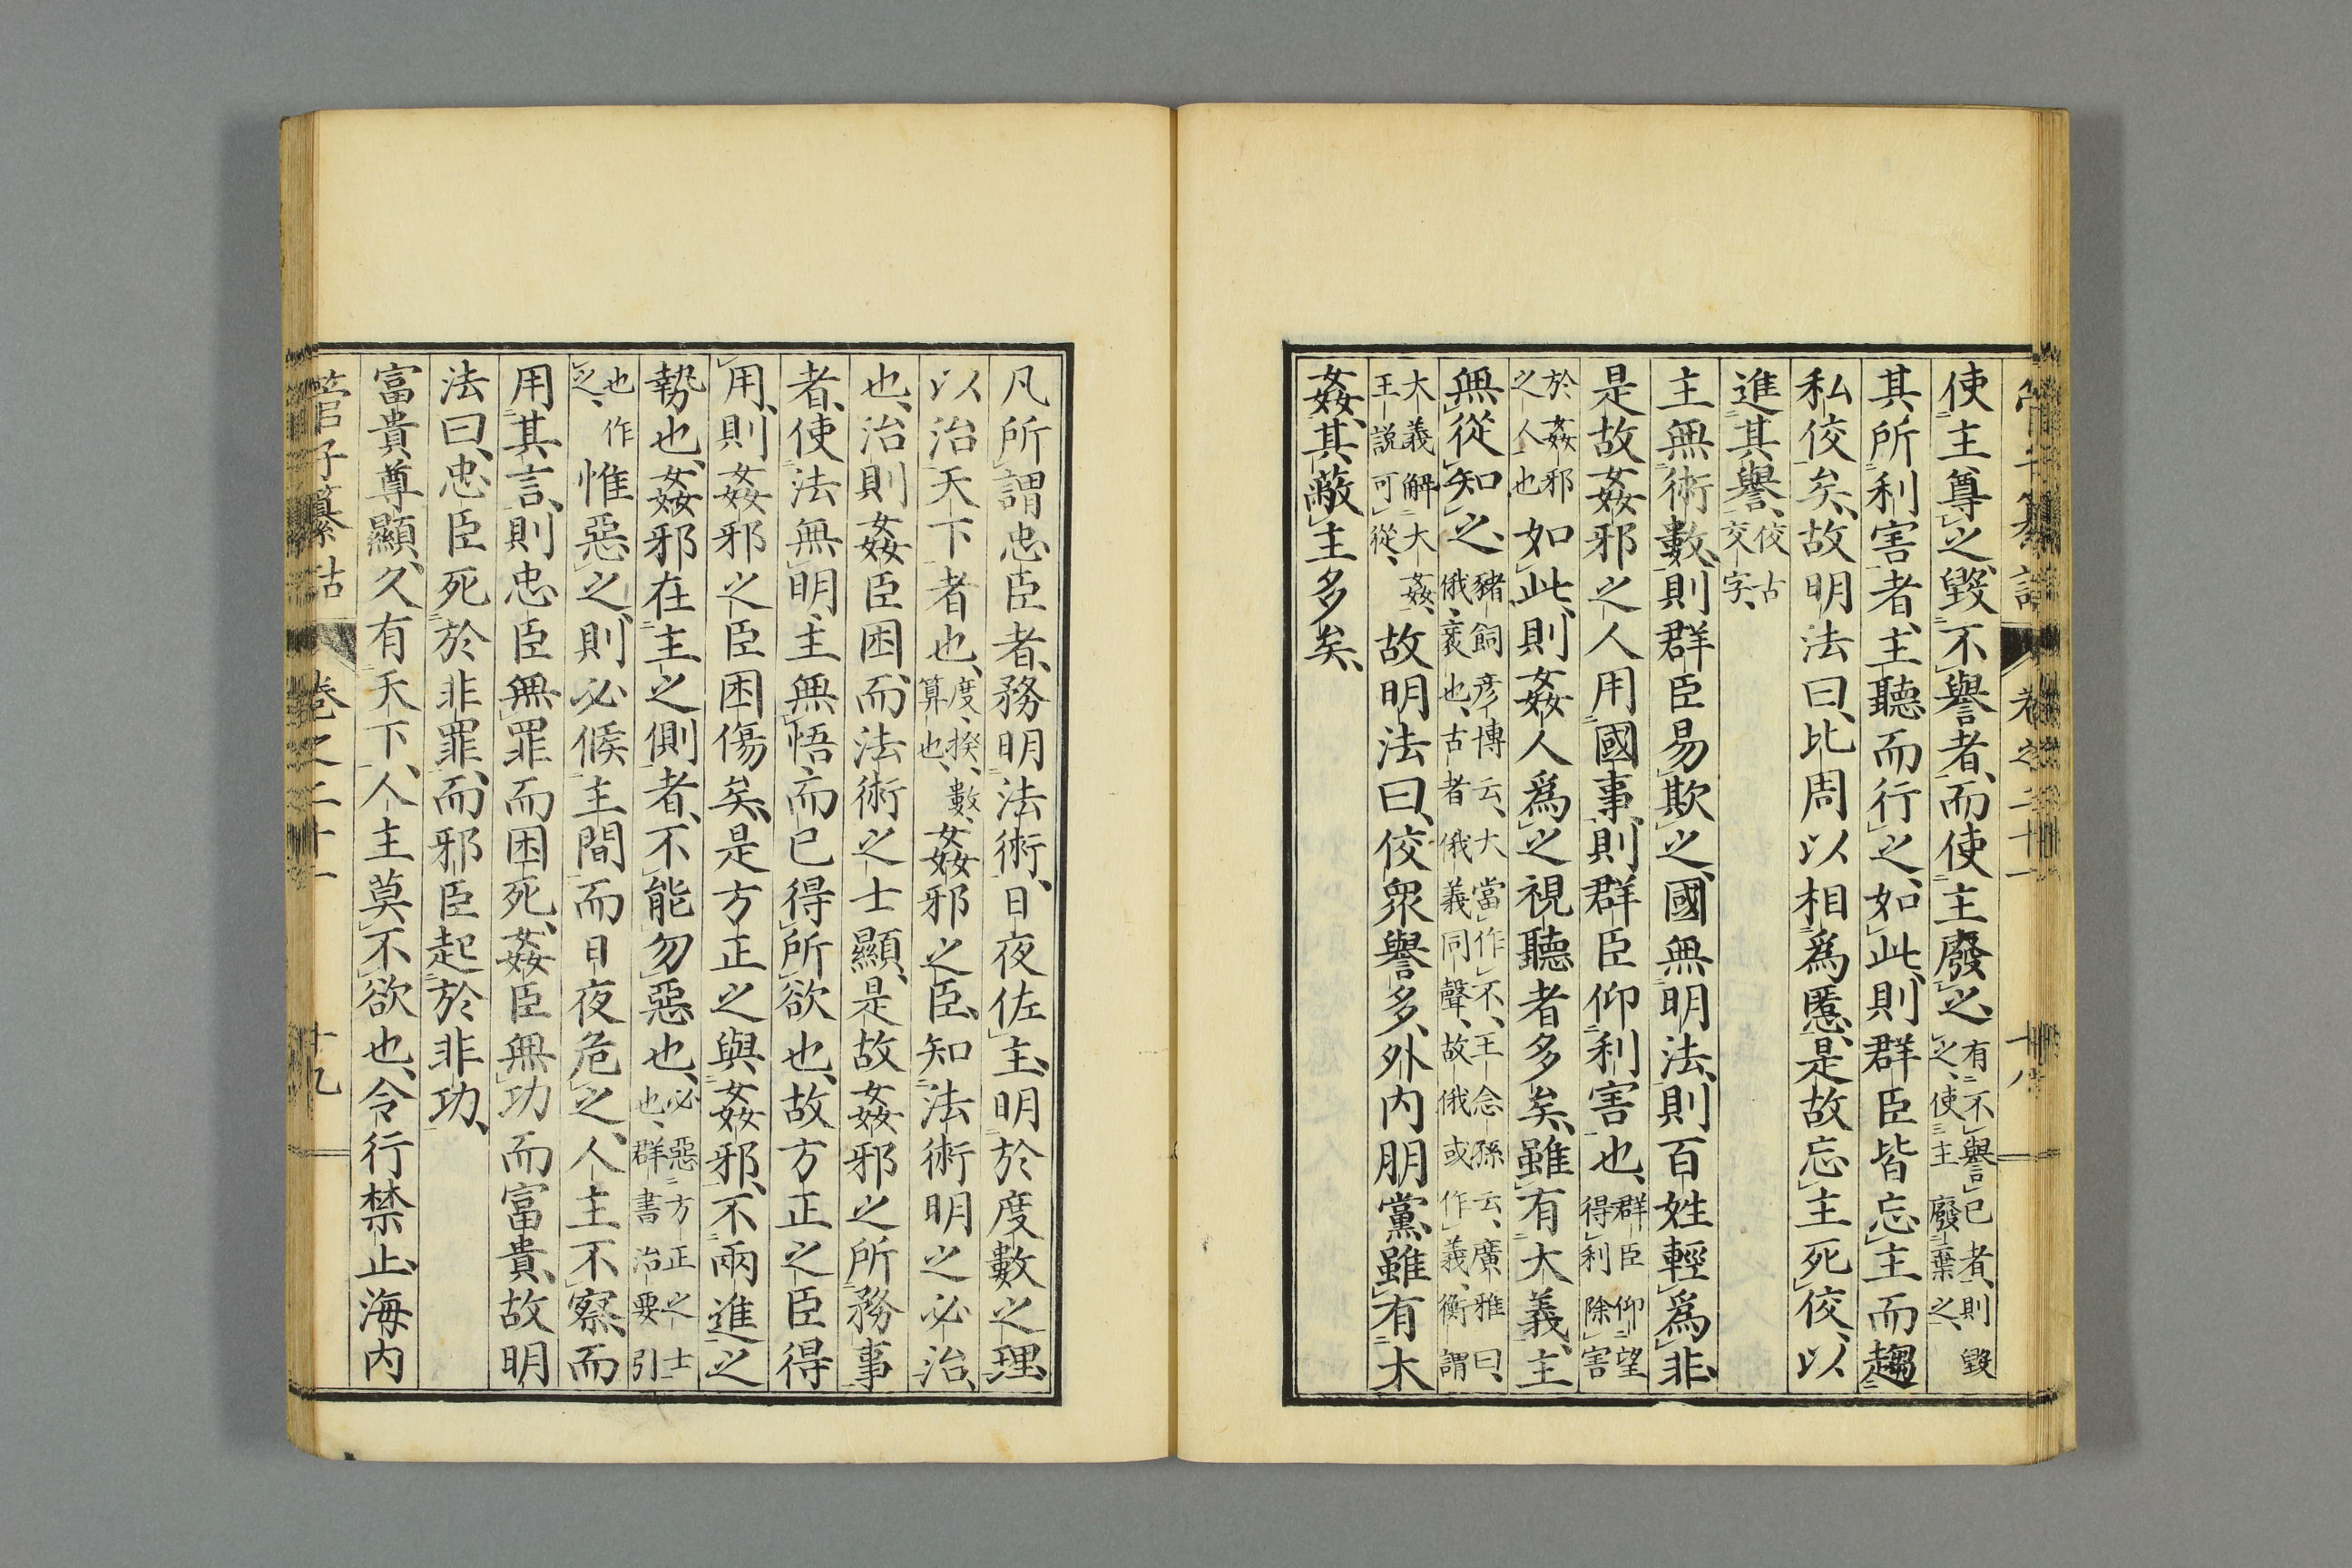 管子纂詁 卷之二十一 十八
使主尊之、毀不譽者、而使主廢之、有不譽己者、則毀之、使主廢棄之、
其所利害者、主聽而行之、如此、則群臣皆忘主而趨
私佼矣、故明法曰、比周以相爲慝、是故忘主死佼、以
進其譽、佼古交字、
主無術數、則群臣易欺之、國無明法、則百姓輕爲非、
是故姦邪之人用國事、則群臣仰利害也、群臣仰望得利除害
於姦邪之人也如此、則姦人爲之視聽者多矣、雖有大義、主
無從知之、豬飼彦博云、大當作不、王念孫云、廣雅曰、俄、衺也、古者俄義同聲、故俄或作義、衡謂
大義解大姦、王説可從、故明法曰、佼衆譽多、外內朋黨、雖有大
姦、其蔽主多矣、
凡所謂忠臣者、務明法術、日夜佐主、明於度數之理、
以治天下者也、度、揆、數、算也、姦邪之臣、知法術明之必治、
也、治則姦臣困、而法術之士顯、是故姦邪之所務事
者、使法無明、主無悟、而已得所欲也、故方正之臣得
用、則姦邪之臣困傷矣、是方正之與姦邪、不兩進之
勢也、姦邪在主之側者、不能勿惡也、必惡方正之士也、群書治要引
也作之、惟惡之、則必候主間而日夜危之、人主不察、而
用其言、則忠臣無罪而困死、姦臣無功而富貴、故明
法曰、忠臣死於非罪、而邪臣起於非功、
富貴尊顯、久有天下、人主莫不欲也、令行禁止、海內
管子纂詁 卷之二十一 十九